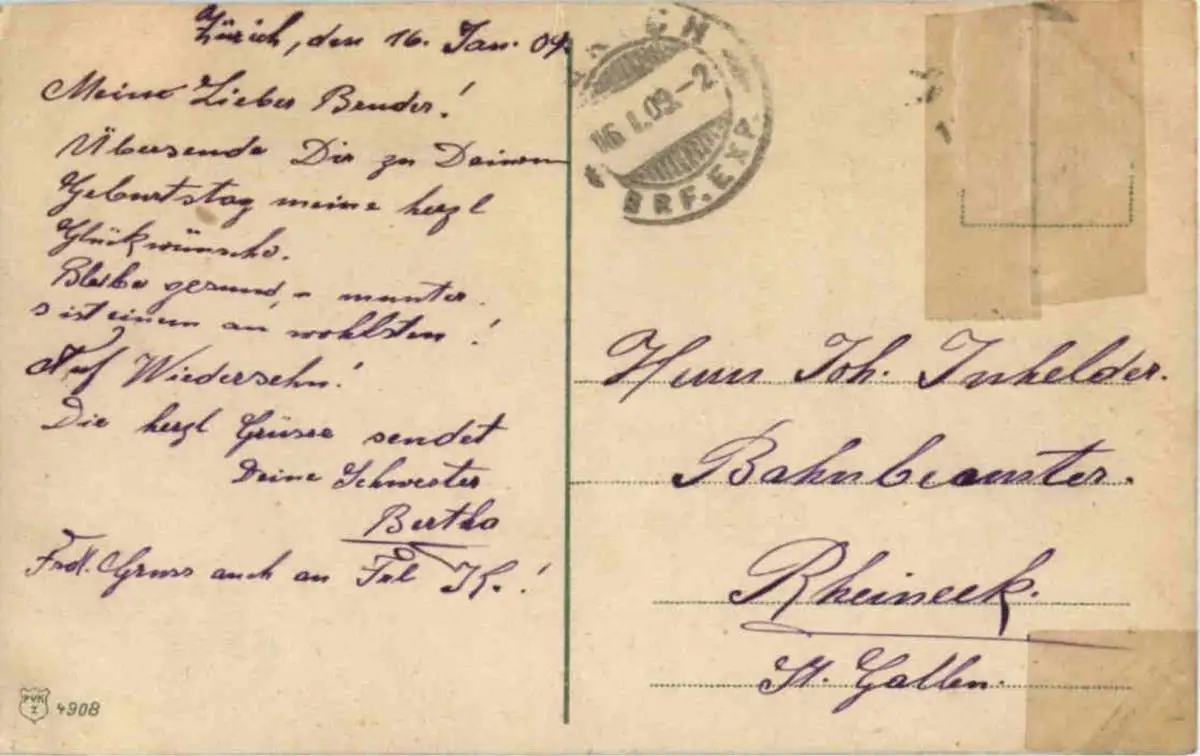 Zürich, den 16. Jan. 09.
Meine Lieber Bruder!
Übersende Dir zu Deinem
Geburtstag meine herzl
Glückwünsche.
Bleibe gesund, - munter.
s ist einem am wohlsten!
Auf Wiedersehn!
Die herzl Grüsse sendet
Deine Schwester
Bertha
Frdl. Gruss auch an Frl K.!
16 I.09.-2
BRF.EXP.
Herrn Joh. Inhelder.
Bahnbeamter.
Rheineck.
St. Gallen.
PVK
Z
4908